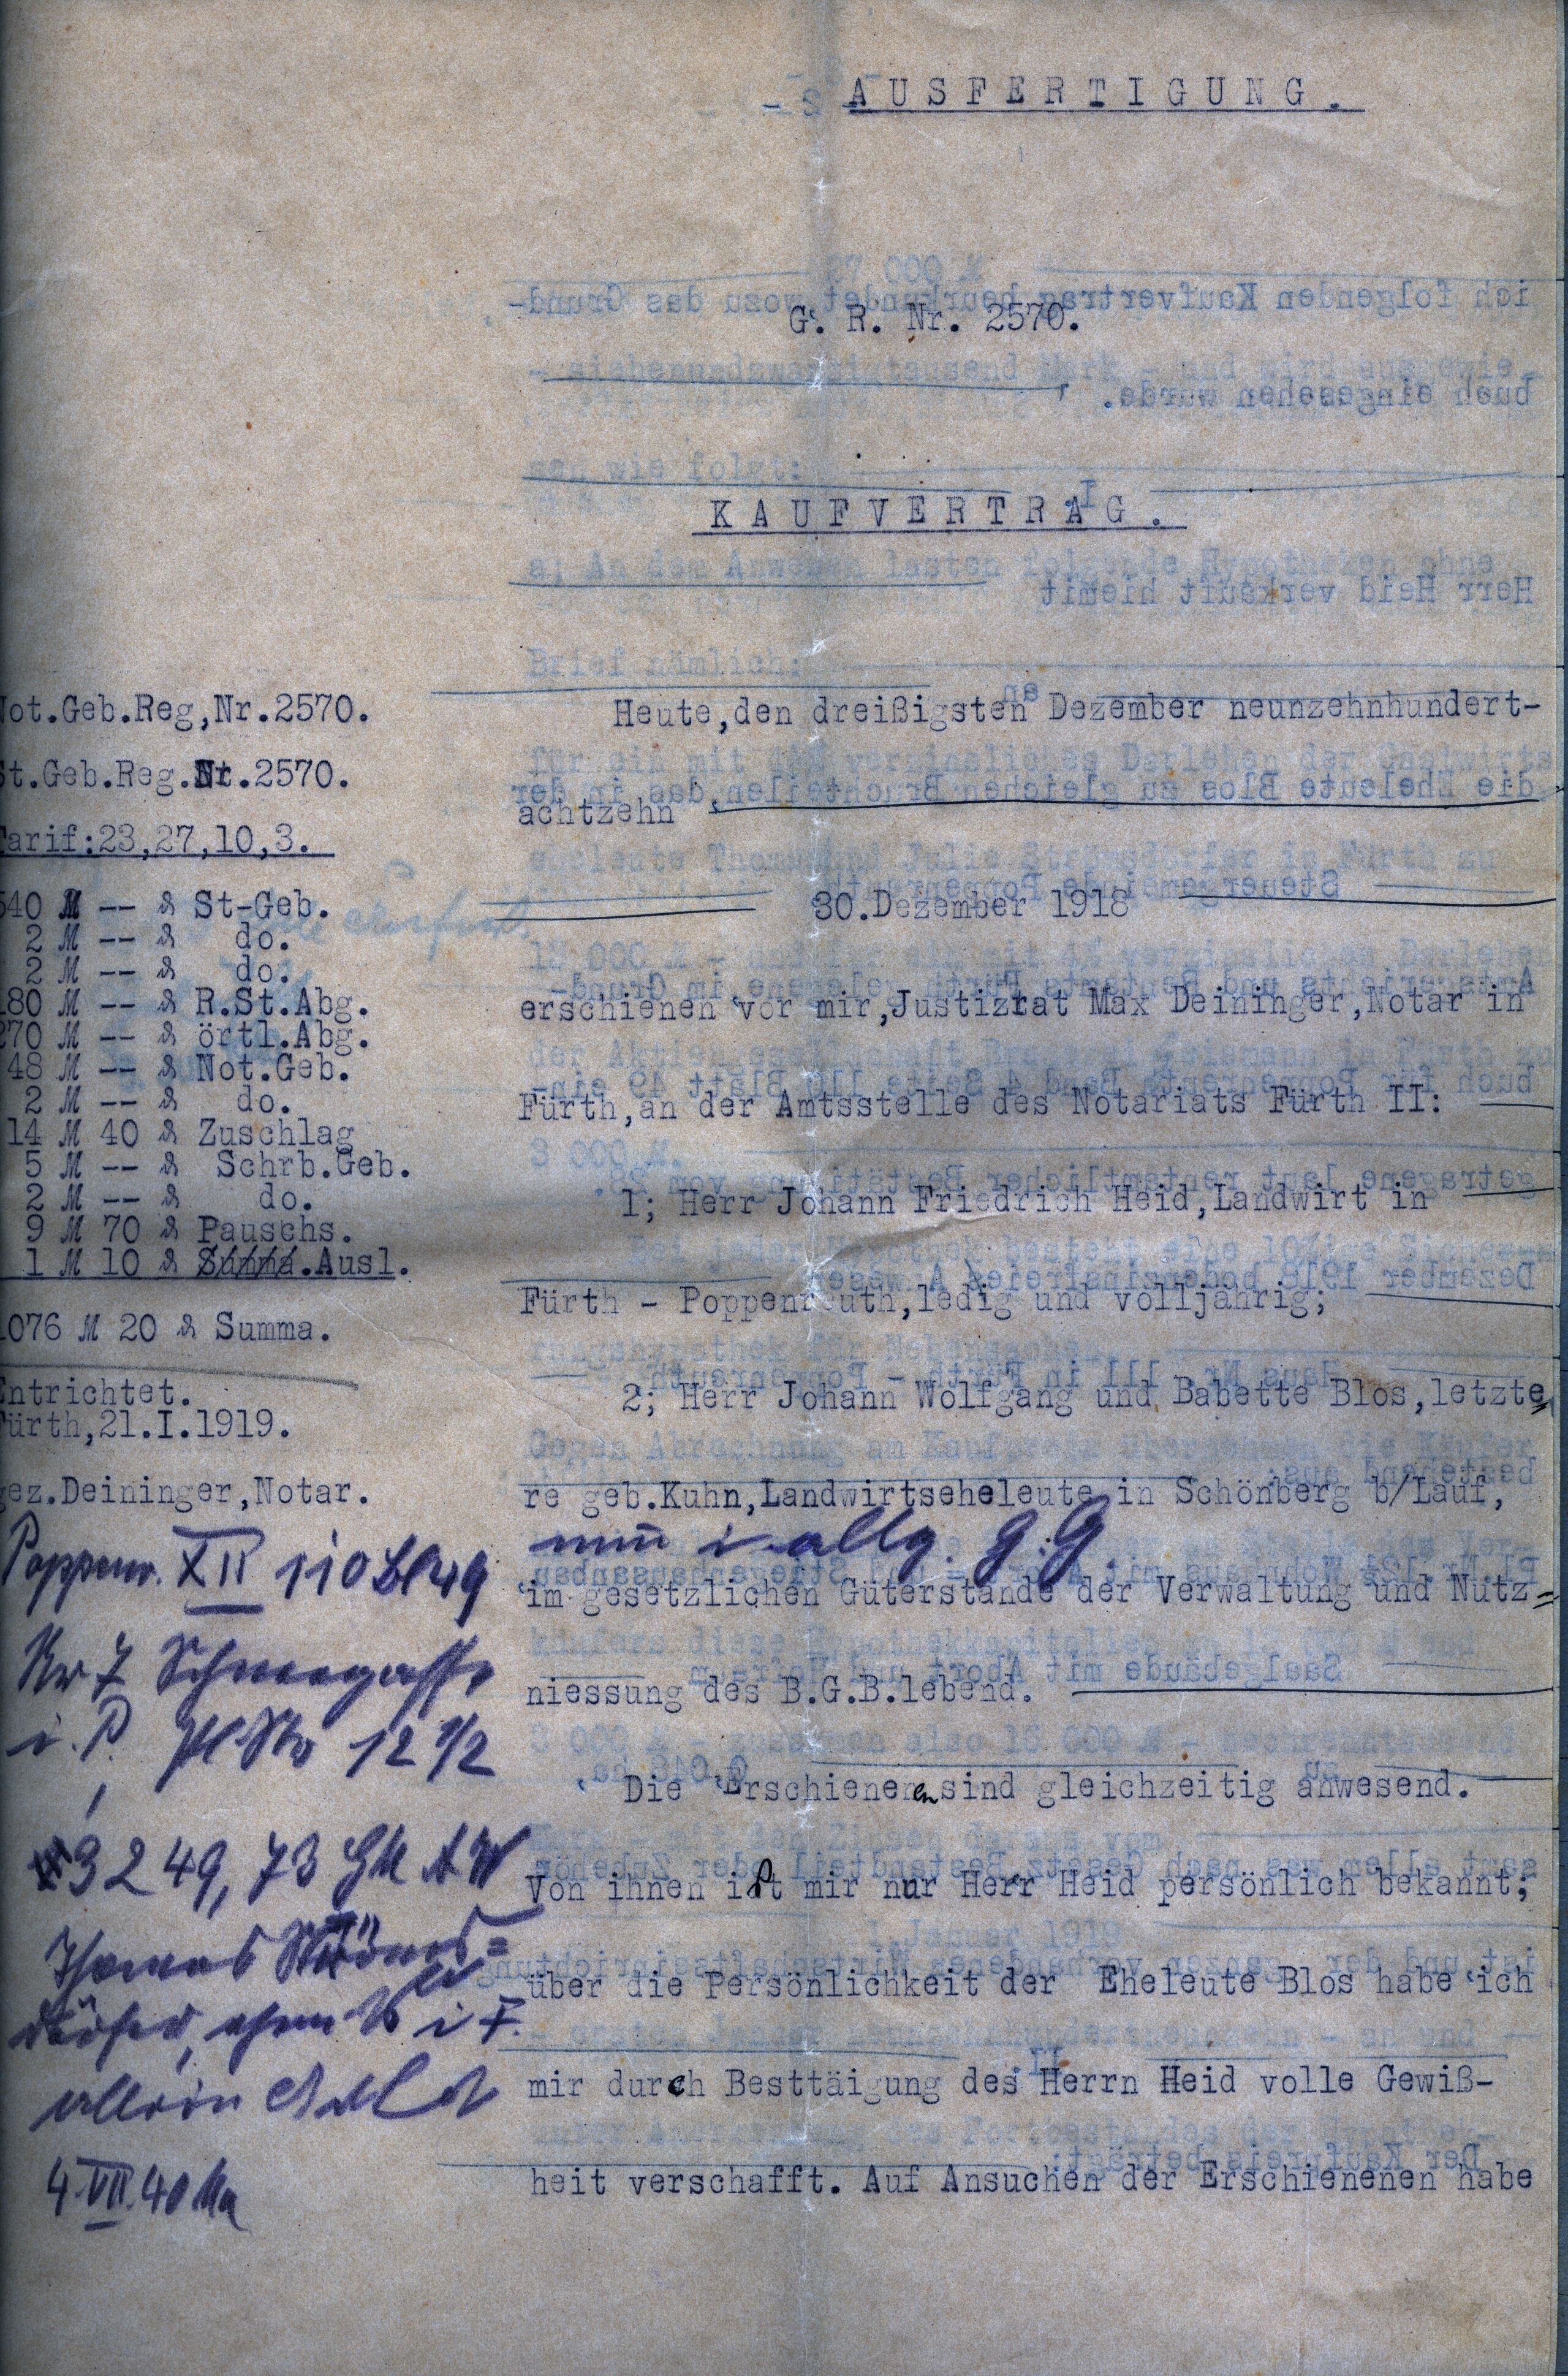 AUSFERTIGUNG.
G. R. Nr. 2570.
KAUFVERTRAG.
Heute,den dreißigsten Dezember neunzehnhundert-
achtzehn
30.Dezember 1918
erschienen vor mir,Justizrat Max Deininger,Notar in
Fürth,an der Amtsstelle des Notariats Fürth II:
1; Herr Johann Friedrich Heid,Landwirt in
Fürth - Poppenreuth,ledig und volljährig;
2; Herr Johann Wolfgang und Babette Blos,letzte=
re geb.Kuhn,Landwirtseheleute in Schönberg b/Lauf,
nun i. allg. G.G.
im gesetzlichen Güterstande der Verwaltung und Nutz=
niessung des B.G.B.lebend.
Die Erschienenen sind gleichzeitig anwesend.
Von ihnen ist mir nur Herr Heid persönlich bekannt;
über die Persönlichkeit der Eheleute Blos habe ich
mir durch Besttäigung des Herrn Heid volle Gewiß-
heit verschafft. Auf Ansuchen der Erschienenen habe
Not.Geb.Reg,Nr.2570.
St.Geb.Reg.Nr.2570.
Tarif:23,27,10,3.
540 M -- ₰ St-Geb.
2 M -- ₰ do.
2 M -- ₰ do.
180 M -- ₰ R.St.Abg.
270 M -- ₰ örtl.Abg.
48 M -- ₰ Not.Geb.
2 M -- ₰ do.
14 M 40 ₰ Zuschlag
5 M -- ₰ Schrb.Geb.
2 M -- ₰ do.
9 M 70 ₰ Pauschs.
1 M 10 ₰ Summa.Ausl.
1076 M 20 ₰ Summa.
Entrichtet.
Fürth,21.I.1919.
gez.Deininger,Notar.
Poppenr. XII 110 Bl 49
Nr 7 Schneegasse
i. P. Pl No 12 1/2
3249,73 GM
Thomas Ströms=
dörfer, i F.
allein
4.VII.40